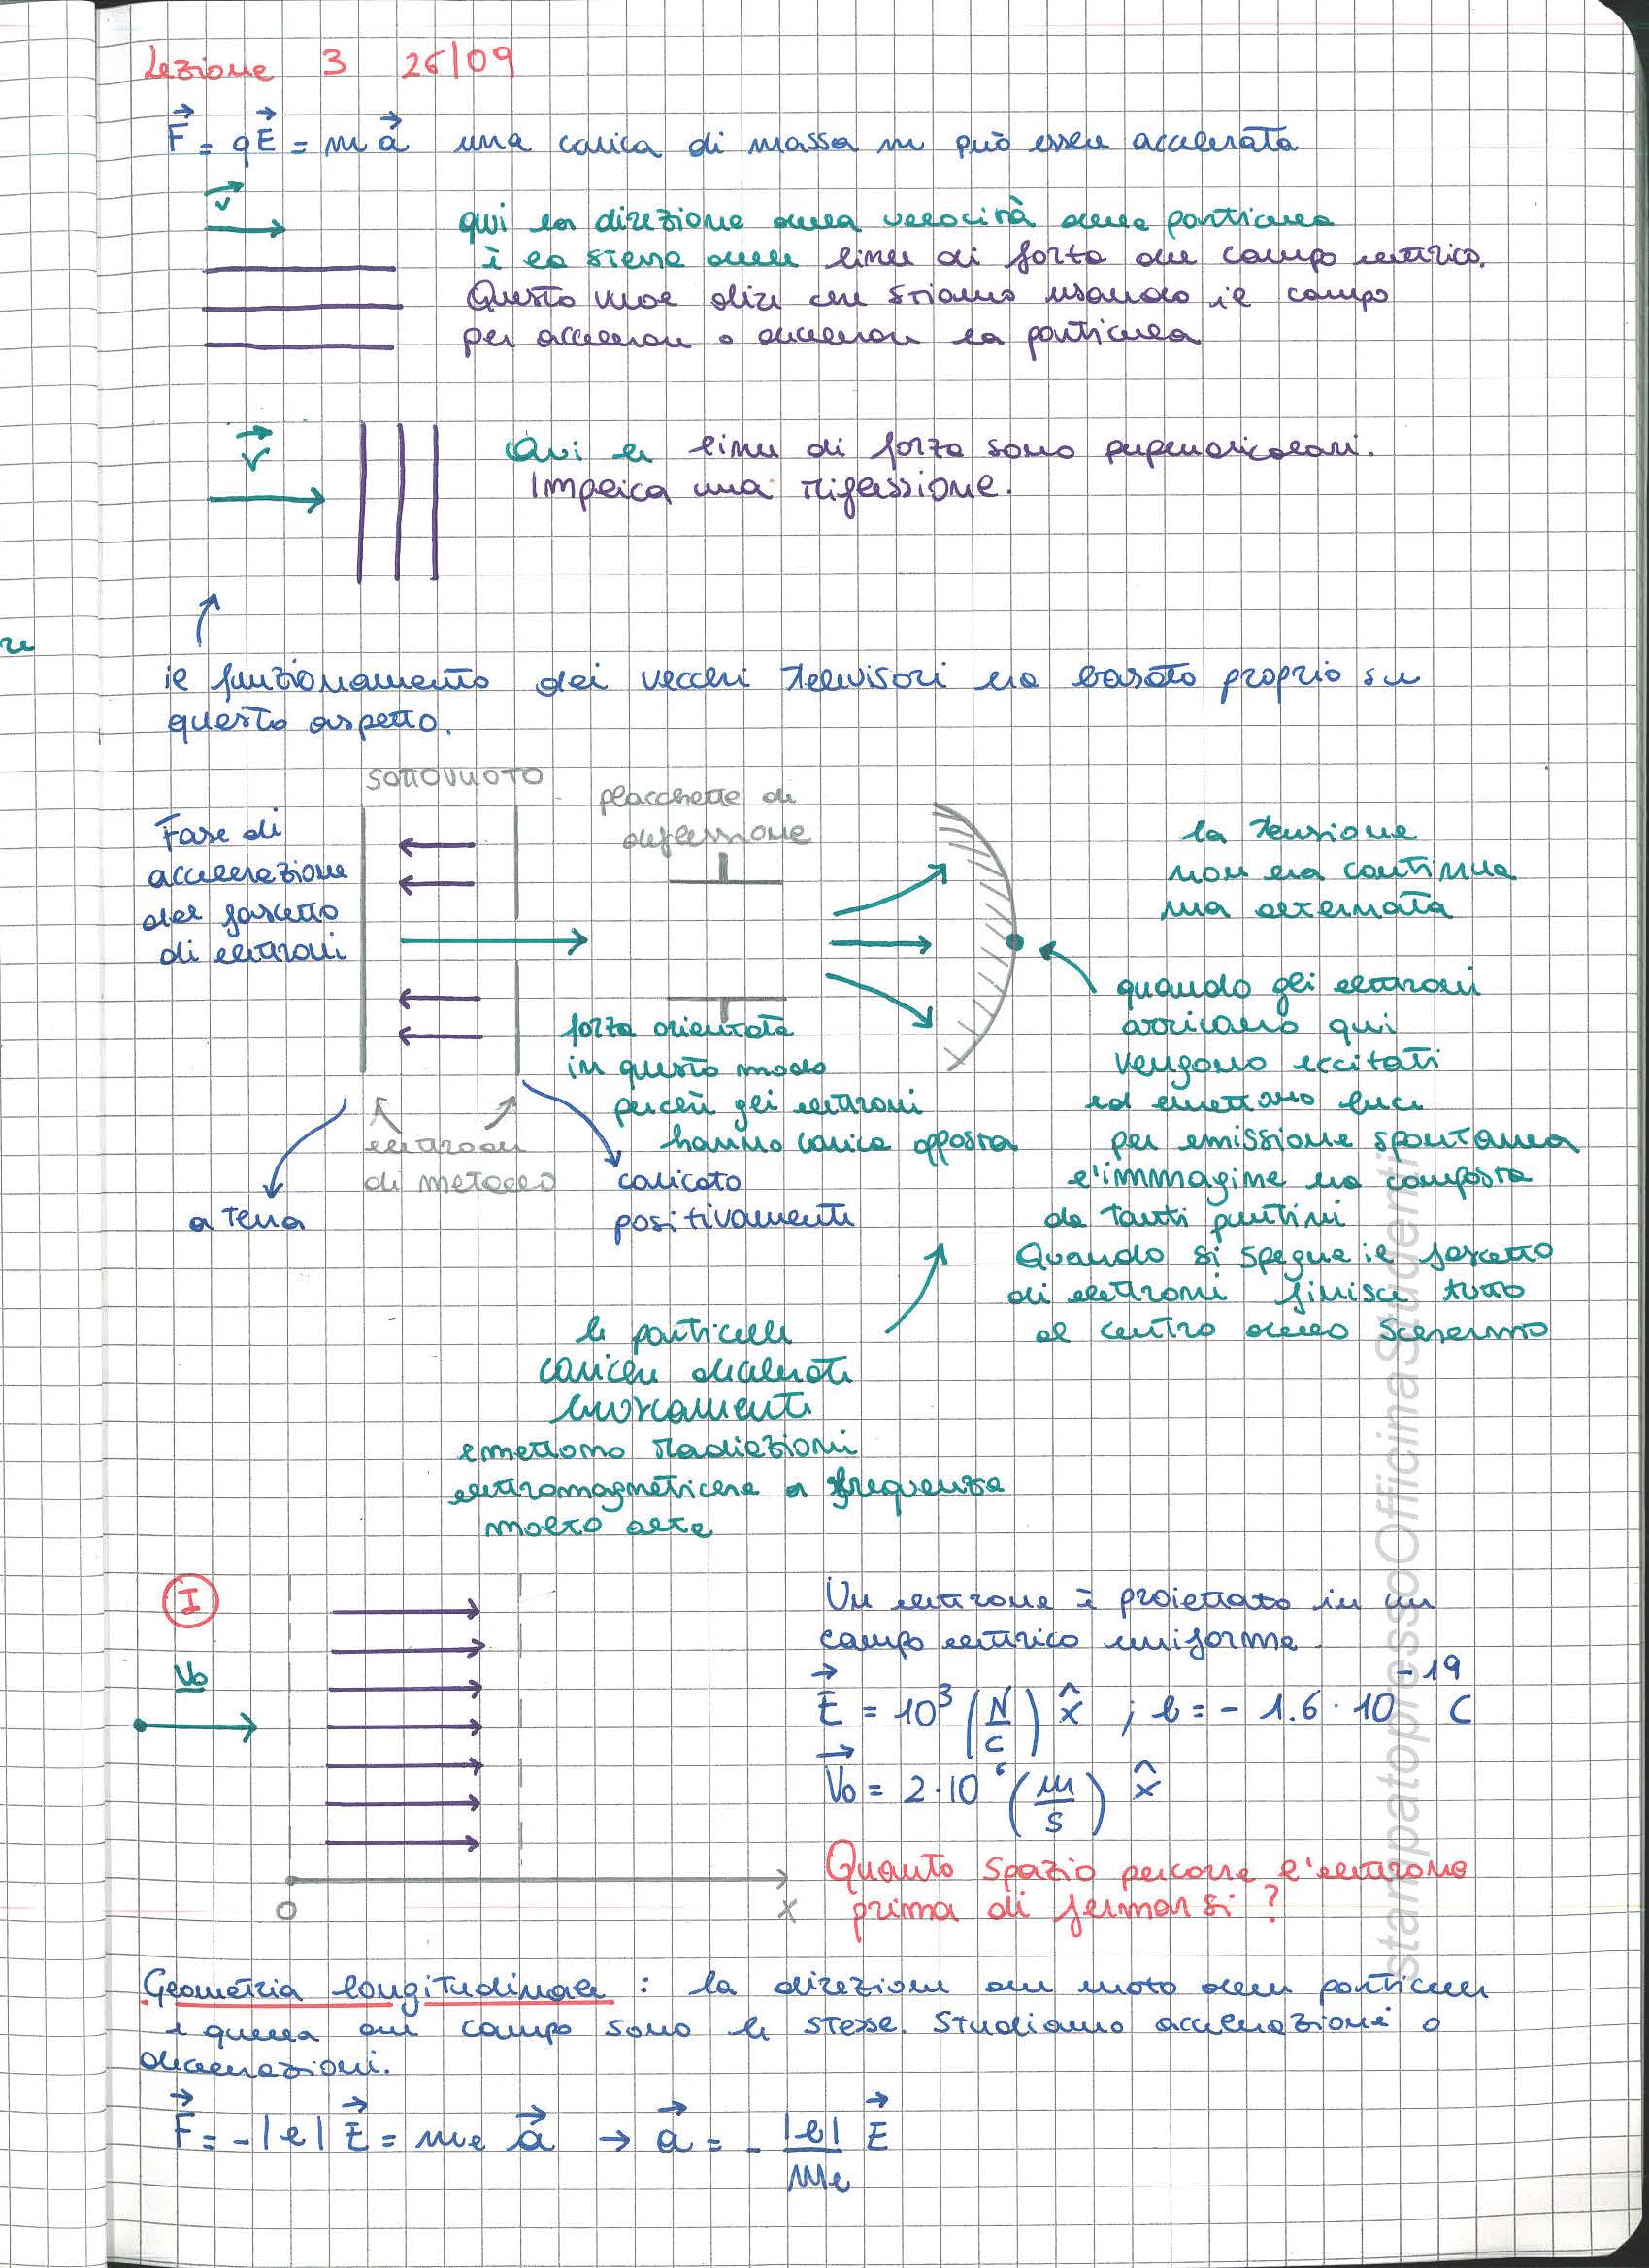 Lezione 3 26/09
F = qE = m a una carica di massa m può essere accelerata
v
qui la direzione della velocità delle particelle
è la stessa delle linee di forza del campo elettrico.
Questo vuol dire che stiamo usando il campo
per accelerare o decelerare la particella
v
Qui le linee di forza sono perpendicolari.
Implica una riflessione.
re
il funzionamento dei vecchi televisori era basato proprio su
questo aspetto.
SOTTOVUOTO
placchette di
deflessione
Fase di
accelerazione
del fascetto
di elettroni
la tensione
non era continua
ma alternata
forza orientata
in questo modo
perchè gli elettroni
hanno carica opposta
quando gli elettroni
arrivano qui
vengono eccitati
ed emettono luce
per emissione spontanea
l'immagine era composta
da tanti puntini
Quando si spegne il fascetto
di elettroni finisce tutto
al centro dello schermo
elettrodi
di metallo
a terra
caricato
positivamente
le particelle
cariche decelerate
bruscamente
emettono radiazioni
elettromagnetiche a frequenza
molto alta
I
V₀
Un elettrone è proiettato in un
campo elettrico uniforme.
E = 10³ (N/C) x̂ ; e = - 1.6 · 10⁻¹⁹ C
V₀ = 2·10⁶ (m/s) x̂
Quanto spazio percorre l'elettrone
prima di fermarsi ?
O x
Geometria longitudinale : la direzione del moto delle particelle
e quella del campo sono le stesse. Studiamo accelerazioni o
decelerazioni.
F = -|e| E = me a → a = - |e|/me E
stampatopressoOfficinaStudenti